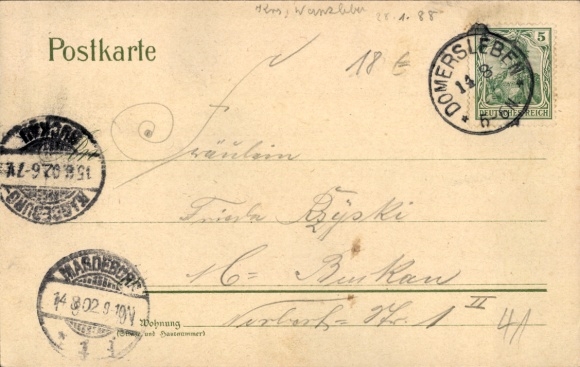 Krs. Wanzleben
28.1.88
Postkarte
18 €
DEUTSCHES REICH
5
DOMERSLEBEN
14 8
5-6N
Fräulein
Frieda
M= Buckau
Norbert= Str. 1 II
41
MAGDEBURG
BUCKAU
15.8.02.6-7V.
MAGDEBURG
14 8 02 9-10N
1
Wohnung
(Straße und Hausnummer)